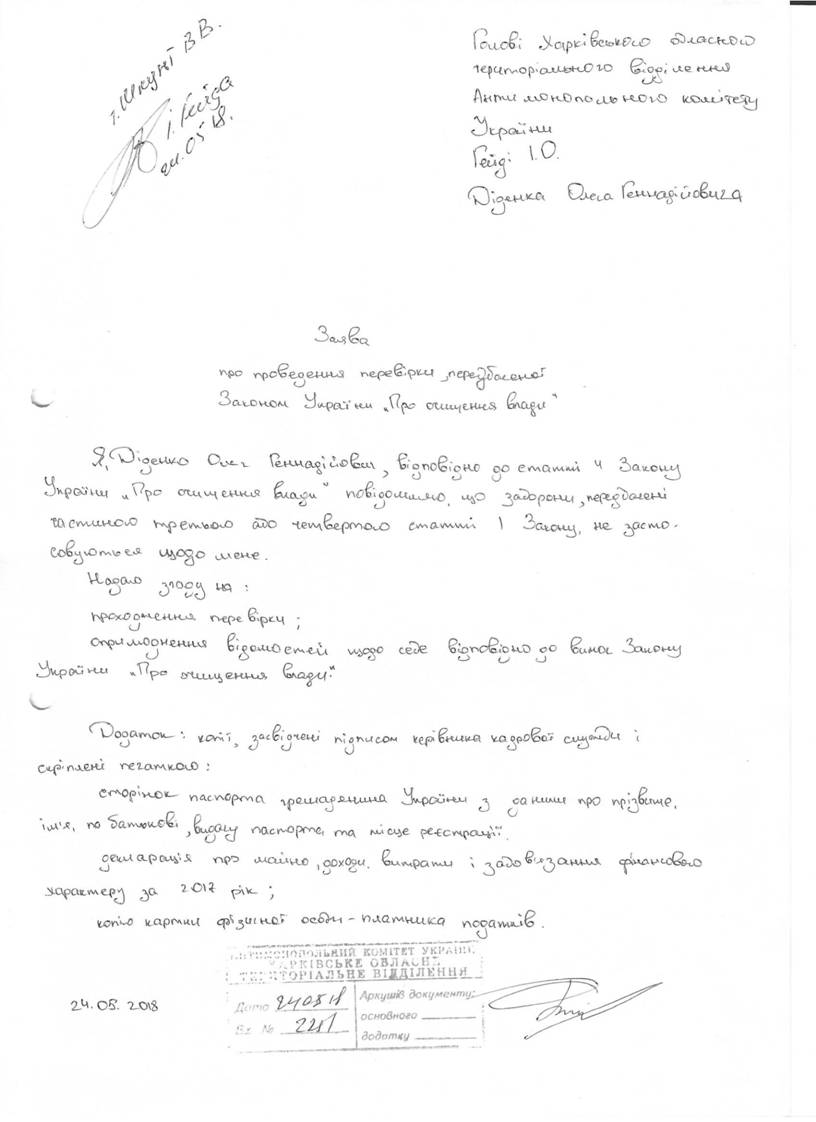 г. Шкуні В В.
І. Гейда
24.05 18.
Голові Харківського обласного
територіального відділення
Антимонопольного комітету
України
Гейді І.О.
Діденка Олега Геннадійовича
Заява
про проведення перевірки, передбаченої
Законом України „Про очищення влади"
Я, Діденко Олег Геннадійович, відповідно до статті 4 Закону
України „Про очищення влади" повідомляю, що заборони, передбачені
частиною третьою або четвертою статті 1 Закону, не засто-
совуються щодо мене.
Надаю згоду на :
проходження перевірки ;
оприлюднення відомостей щодо себе відповідно до вимог Закону
України „Про очищення влади".
Додаток : копії, засвідчені підписом керівника кадрової служби і
скріплені печаткою :
сторінок паспорта громадянина України з даними про прізвище,
ім'я, по батькові, видачу паспорта та місце реєстрації.
декларація про майно, доходи, витрати і зобов'язання фінансового
характеру за 2017 рік ;
копію картки фізичної особи - платника податків.
АНТИМОНОПОЛЬНИЙ КОМІТЕТ УКРАЇНИ
ХАРКІВСЬКЕ ОБЛАСНЕ
ТЕРИТОРІАЛЬНЕ ВІДДІЛЕННЯ
24.05.2018
Дата 240518
Вх. № 221
Аркушів документу:
основного
додатку